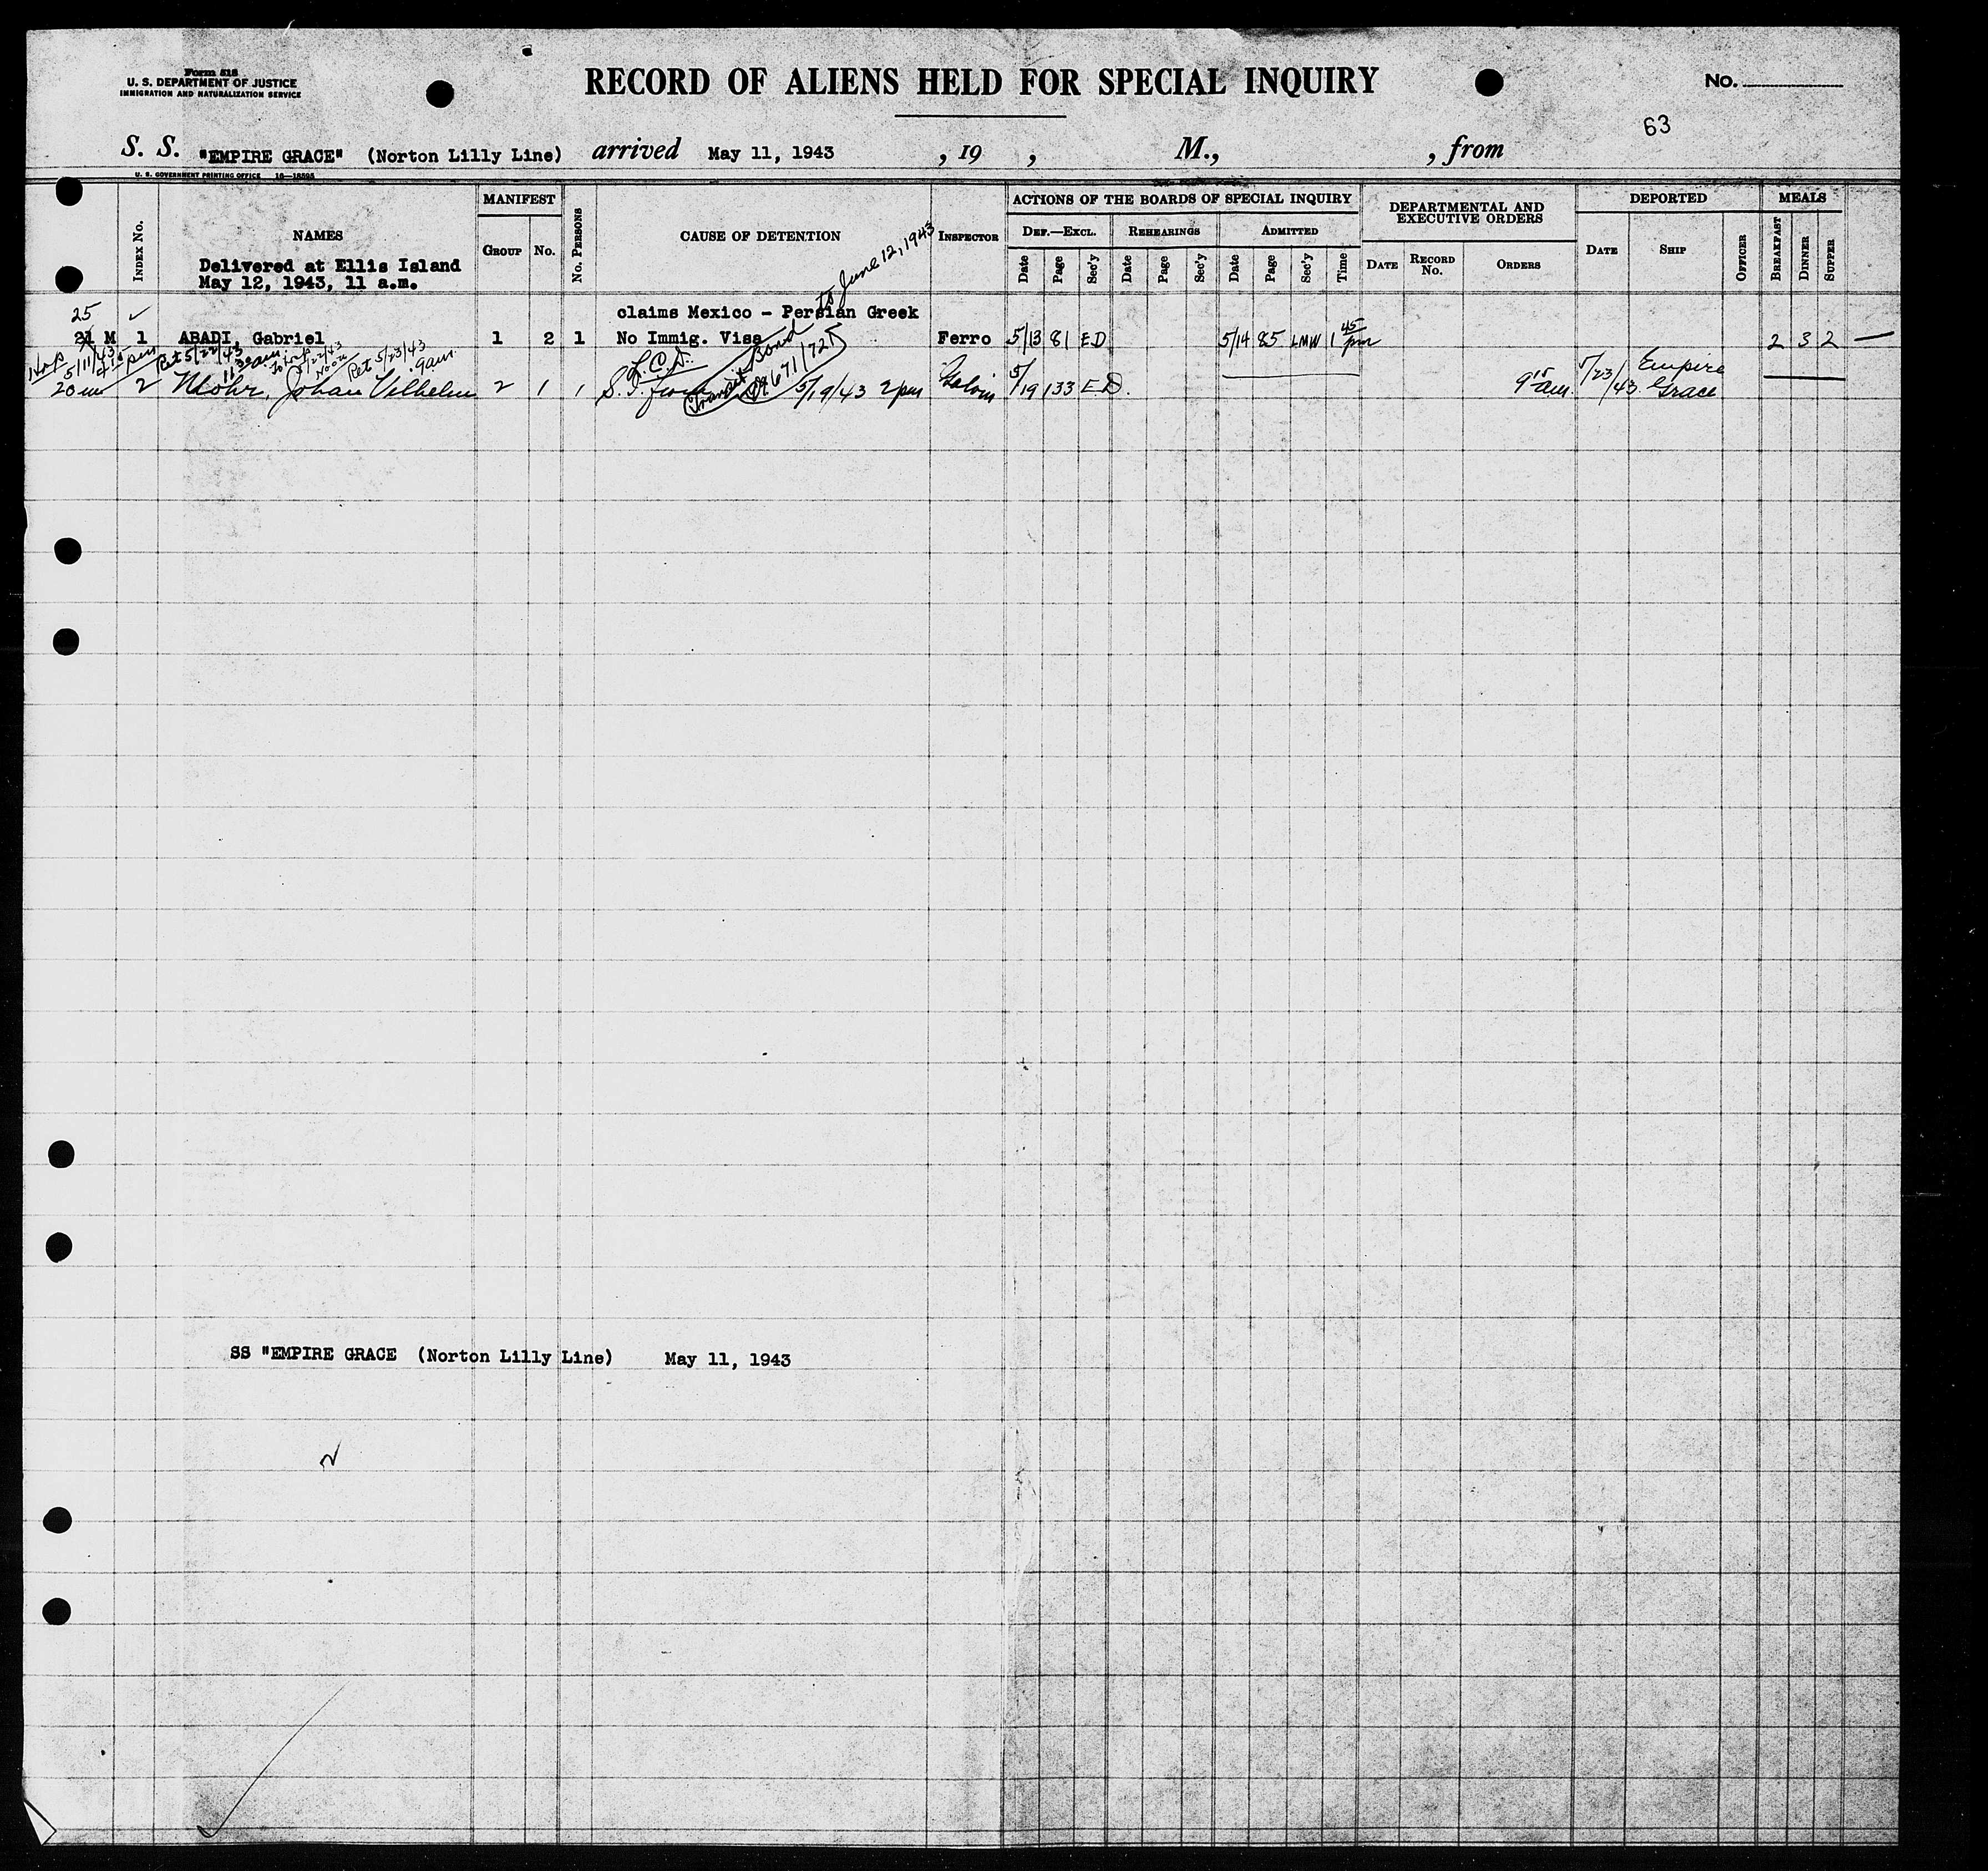 Form 518
U. S. DEPARTMENT OF JUSTICE
IMMIGRATION AND NATURALIZATION SERVICE
RECORD OF ALIENS HELD FOR SPECIAL INQUIRY
No.
63
S. S. "EMPIRE GRACE" (Norton Lilly Line) arrived May 11, 1943 , 19 , M., , from
U. S. GOVERNMENT PRINTING OFFICE 16—18595
MANIFEST
ACTIONS OF THE BOARDS OF SPECIAL INQUIRY
DEPARTMENTAL AND EXECUTIVE ORDERS
DEPORTED
MEALS
INDEX No.
NAMES
GROUP
No.
No. PERSONS
CAUSE OF DETENTION
INSPECTOR
DEF.—EXCL.
REHEARINGS
ADMITTED
Date Page Sec'y Date Page Sec'y Date Page Sec'y Time
DATE RECORD No. ORDERS
DATE SHIP OFFICER
BREAKFAST DINNER SUPPER
Delivered at Ellis Island
May 12, 1943, 11 a.m.
to June 12, 1943
25
claims Mexico - Persian Greek
21 M 1 ABADI, Gabriel 1 2 1 No Immig. Visa Ferro 5/13 81 ED 5/14 85 LMW 1 45 pm 2 3 2 —
Hosp 5/11/43 4 15 pm Ret 5/22/43 11 30 am To Hosp 5/22/43 Noon Ret 5/23/43 9am.
L.C.D.
Transit Bond
99671/725
20 m 2 Mohr, Johan Vilhelm 2 1 1 S.I. from 5/19/43 2 pm Galvin 5/19 133 E.D. 9 15 am. 5/23/43 Empire Grace
SS "EMPIRE GRACE (Norton Lilly Line) May 11, 1943